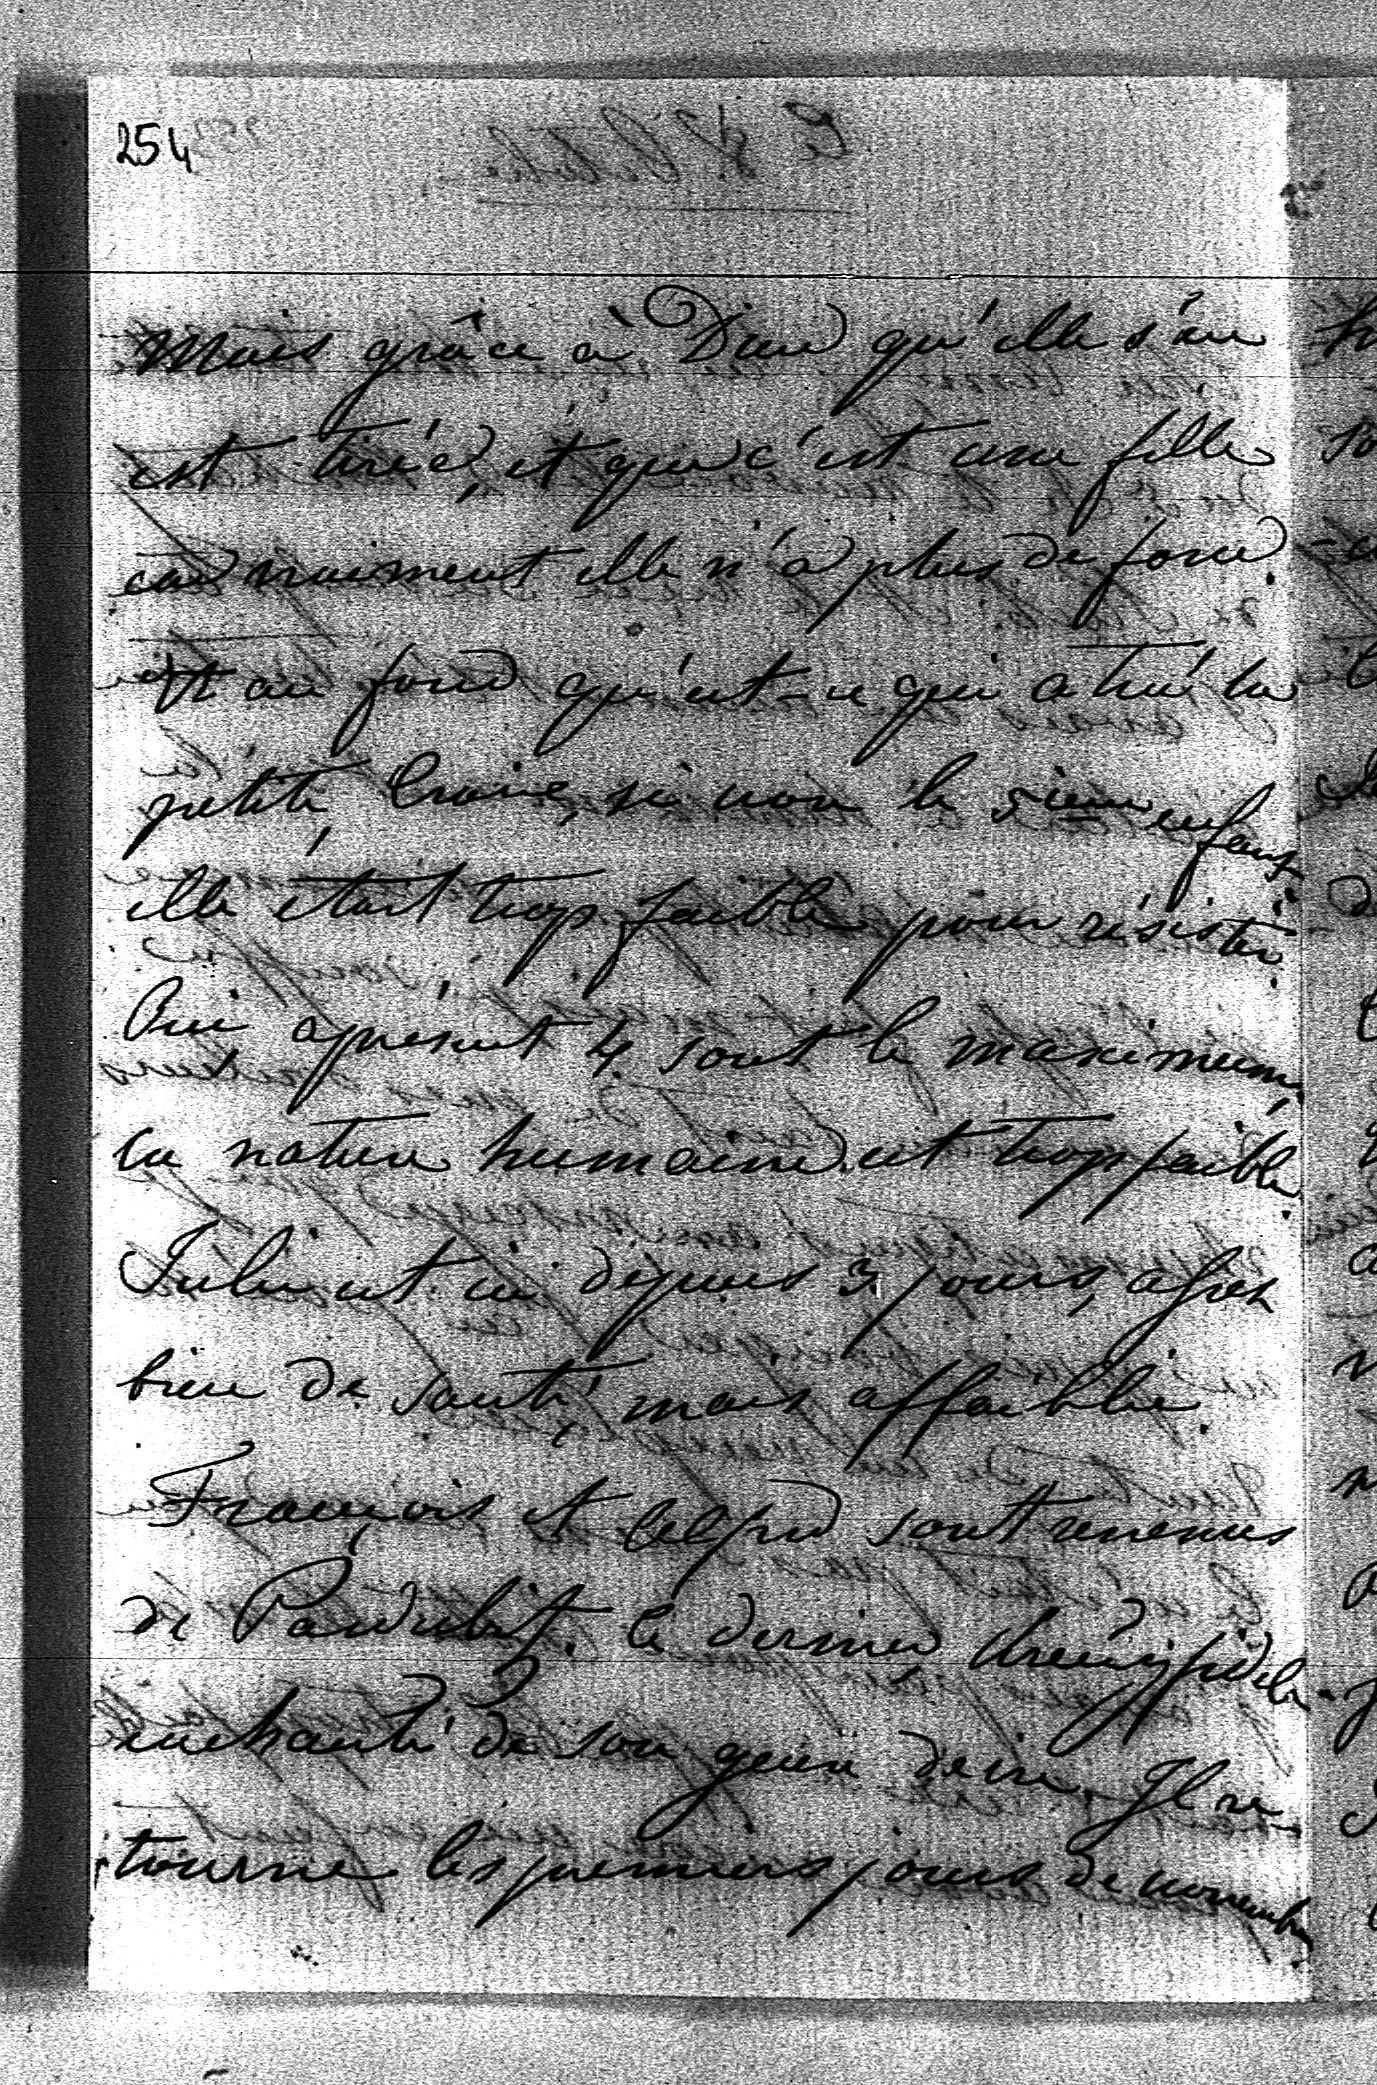 254
Mais grâce à Dieu qu'elle s'en
est tirée, et que c'est une fille
car vraiment elle n'a plus de force.
Et au fond qu'est-ce qui a tué la
petite Croix, si non le 5ieme enfant
elle était trop faible pour résister.
Oui apresent 4 sont le maximum,
la nature humaine est trop faible.
Julie est ici depuis 3 jours, assez
bien de santé, mais affaiblie.
François et Alfred sont revenus
de Pardubitz. le dernier
enchanté de son genre de vie. Il re-
tourne les premiers jours de novembre